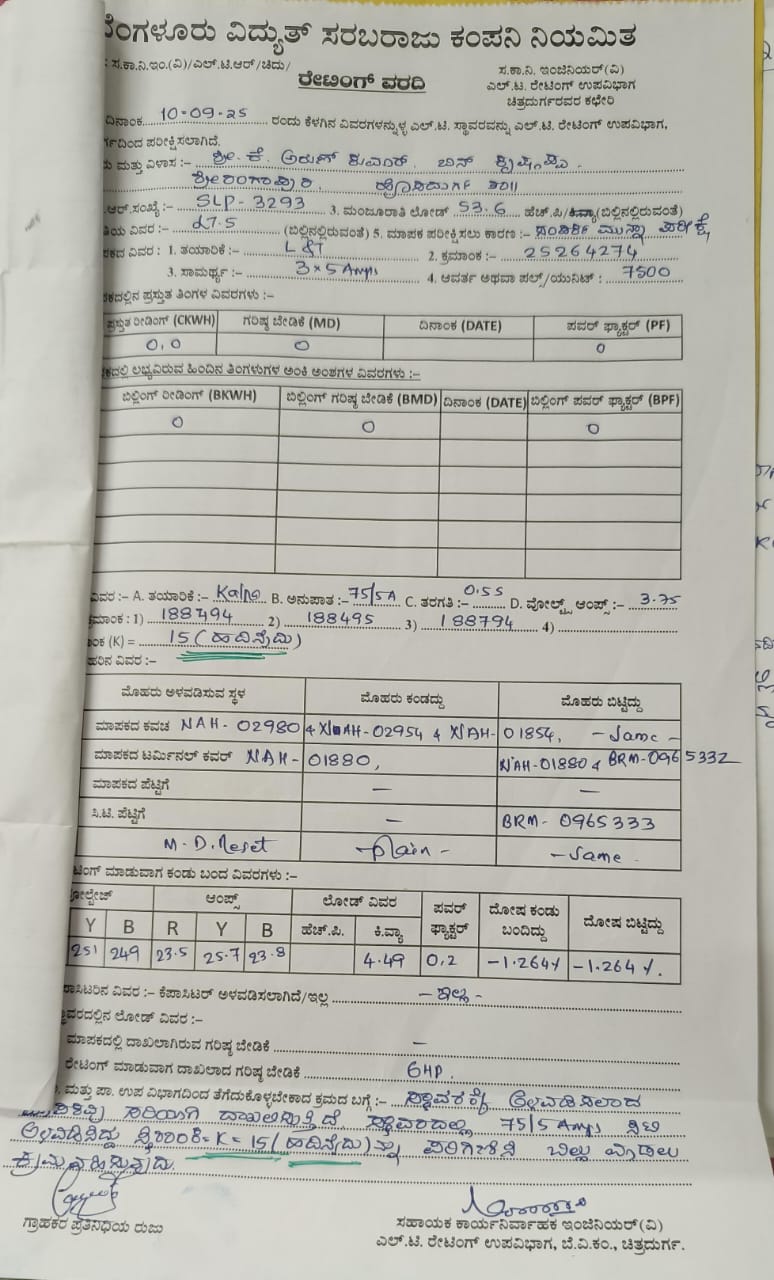 ಬೆಂಗಳೂರು ವಿದ್ಯುತ್ ಸರಬರಾಜು ಕಂಪನಿ ನಿಯಮಿತ
: ಸ.ಕಾ.ನಿ.ಇಂ.(ವಿ)/ಎಲ್.ಟಿ.ಆರ್/ಚಿದು/
ಸ.ಕಾ.ನಿ. ಇಂಜಿನಿಯರ್(ವಿ)
ರೇಟಿಂಗ್ ವರದಿ
ಎಲ್.ಟಿ. ರೇಟಿಂಗ್ ಉಪವಿಭಾಗ
ಚಿತ್ರದುರ್ಗರವರ ಕಛೇರಿ
ದಿನಾಂಕ 10-09-25 ರಂದು ಕೆಳಗಿನ ವಿವರಗಳನ್ನುಳ್ಳ ಎಲ್.ಟಿ. ಸ್ಥಾವರವನ್ನು ಎಲ್.ಟಿ. ರೇಟಿಂಗ್ ಉಪವಿಭಾಗ,
ರ್ಗದಿಂದ ಪರೀಕ್ಷಿಸಲಾಗಿದೆ.
ಮತ್ತು ವಿಳಾಸ :- ಶ್ರೀ. ಕೆ. ಅರುಣ್ ಕುಮಾರ್. ಬಿನ್ ಕೃಷ್ಣಪ್ಪ
ಶ್ರೀರಂಗಾಪುರ, ಹೊಸದುರ್ಗ ತಾ||
.ಆರ್.ಸಂಖ್ಯೆ :- SLP-3293 3. ಮಂಜೂರಾತಿ ಲೋಡ್ 53.6 ಹೆಚ್.ಪಿ/ಕಿವ್ಯಾ(ಬಿಲ್ಲಿನಲ್ಲಿರುವಂತೆ)
ತಿಯ ವಿವರ :- LT-5 (ಬಿಲ್ಲಿನಲ್ಲಿರುವಂತೆ) 5. ಮಾಪಕ ಪರೀಕ್ಷಿಸಲು ಕಾರಣ :- ಸಂಪರ್ಕ ಮುನ್ನಾ ಪರೀಕ್ಷೆ
ಕದ ವಿವರ : 1. ತಯಾರಿಕೆ :- L&T 2. ಕ್ರಮಾಂಕ :- 25264274
3. ಸಾಮರ್ಥ್ಯ :- 3×5 Amps 4. ಆವರ್ತ ಅಥವಾ ಪಲ್ಸ್/ಯುನಿಟ್ : 7500
ಕದಲ್ಲಿನ ಪ್ರಸ್ತುತ ತಿಂಗಳ ವಿವರಗಳು :-
ಪ್ರಸ್ತುತ ರೀಡಿಂಗ್ (CKWH) ಗರಿಷ್ಠ ಬೇಡಿಕೆ (MD) ದಿನಾಂಕ (DATE) ಪವರ್ ಫ್ಯಾಕ್ಟರ್ (PF)
0.0 0 0
ಕದಲ್ಲಿ ಲಭ್ಯವಿರುವ ಹಿಂದಿನ ತಿಂಗಳುಗಳ ಅಂಕಿ ಅಂಶಗಳ ವಿವರಗಳು :-
ಬಿಲ್ಲಿಂಗ್ ರೀಡಿಂಗ್ (BKWH) ಬಿಲ್ಲಿಂಗ್ ಗರಿಷ್ಠ ಬೇಡಿಕೆ (BMD) ದಿನಾಂಕ (DATE) ಬಿಲ್ಲಿಂಗ್ ಪವರ್ ಫ್ಯಾಕ್ಟರ್ (BPF)
0 0 0
ವಿವರ :- A. ತಯಾರಿಕೆ :- Kalpa B. ಅನುಪಾತ :- 75/5A C. ತರಗತಿ :- 0.5S D. ವೋಲ್ಟ್ಸ್ ಆಂಪ್ಸ್ :- 3.75
ಮಾಂಕ : 1) 188494 2) 188495 3) 188794 4)
ಂಕ (K) = 15 (ಹದಿನೈದು)
ಹರಿನ ವಿವರ :-
ಮೊಹರು ಅಳವಡಿಸುವ ಸ್ಥಳ ಮೊಹರು ಕಂಡದ್ದು ಮೊಹರು ಬಿಟ್ಟಿದ್ದು
ಮಾಪಕದ ಕವಚ NAH-02980 & NAH-02954 & NAH-01854, - Same -
ಮಾಪಕದ ಟರ್ಮಿನಲ್ ಕವರ್ NAH-01880, NAH-01880 & BRM-0965332
ಮಾಪಕದ ಪೆಟ್ಟಿಗೆ — —
ಸಿ.ಟಿ. ಪೆಟ್ಟಿಗೆ — BRM-0965333
M.D.Reset -plain- -Same.
ಟಿಂಗ್ ಮಾಡುವಾಗ ಕಂಡು ಬಂದ ವಿವರಗಳು :-
ೋಲ್ಟೇಜ್ ಆಂಪ್ಸ್ ಲೋಡ್ ವಿವರ ಪವರ್ ಫ್ಯಾಕ್ಟರ್ ದೋಷ ಕಂಡು ಬಂದಿದ್ದು ದೋಷ ಬಿಟ್ಟಿದ್ದು
Y B R Y B ಹೆಚ್.ಪಿ. ಕಿ.ವ್ಯಾ
251 249 23.5 25.7 23.8 4.49 0.2 -1.264% -1.264%.
ಾಸಿಟರಿನ ವಿವರ :- ಕೆಪಾಸಿಟರ್ ಅಳವಡಿಸಲಾಗಿದೆ/ಇಲ್ಲ - ಇಲ್ಲ -
ಾವರದಲ್ಲಿನ ಲೋಡ್ ವಿವರ :-
ಮಾಪಕದಲ್ಲಿ ದಾಖಲಾಗಿರುವ ಗರಿಷ್ಠ ಬೇಡಿಕೆ —
ರೇಟಿಂಗ್ ಮಾಡುವಾಗ ದಾಖಲಾದ ಗರಿಷ್ಠ ಬೇಡಿಕೆ 6HP.
. ಮತ್ತು ಪಾ. ಉಪ ವಿಭಾಗದಿಂದ ತೆಗೆದುಕೊಳ್ಳಬೇಕಾದ ಕ್ರಮದ ಬಗ್ಗೆ :- ಸ್ಥಾವರಕ್ಕೆ ಅಳವಡಿಸಲಾದ
ಸರಿಯಾಗಿ ದಾಖಲಿಸುತ್ತಿದೆ. ಸ್ಥಾವರದಲ್ಲಿ 75/5 Amps
ಅಳವಡಿಸಿದ್ದು K=15 (ಹದಿನೈದು) ನ್ನು ಪರಿಗಣಿಸಿ ಬಿಲ್ಲು ಮಾಡಲು
ಕ್ರಮವಹಿಸುವುದು.
ಗ್ರಾಹಕರ ಪ್ರತಿನಿಧಿಯ ರುಜು
ಸಹಾಯಕ ಕಾರ್ಯನಿರ್ವಾಹಕ ಇಂಜಿನಿಯರ್(ವಿ)
ಎಲ್.ಟಿ. ರೇಟಿಂಗ್ ಉಪವಿಭಾಗ, ಬೆ.ವಿ.ಕಂ., ಚಿತ್ರದುರ್ಗ.